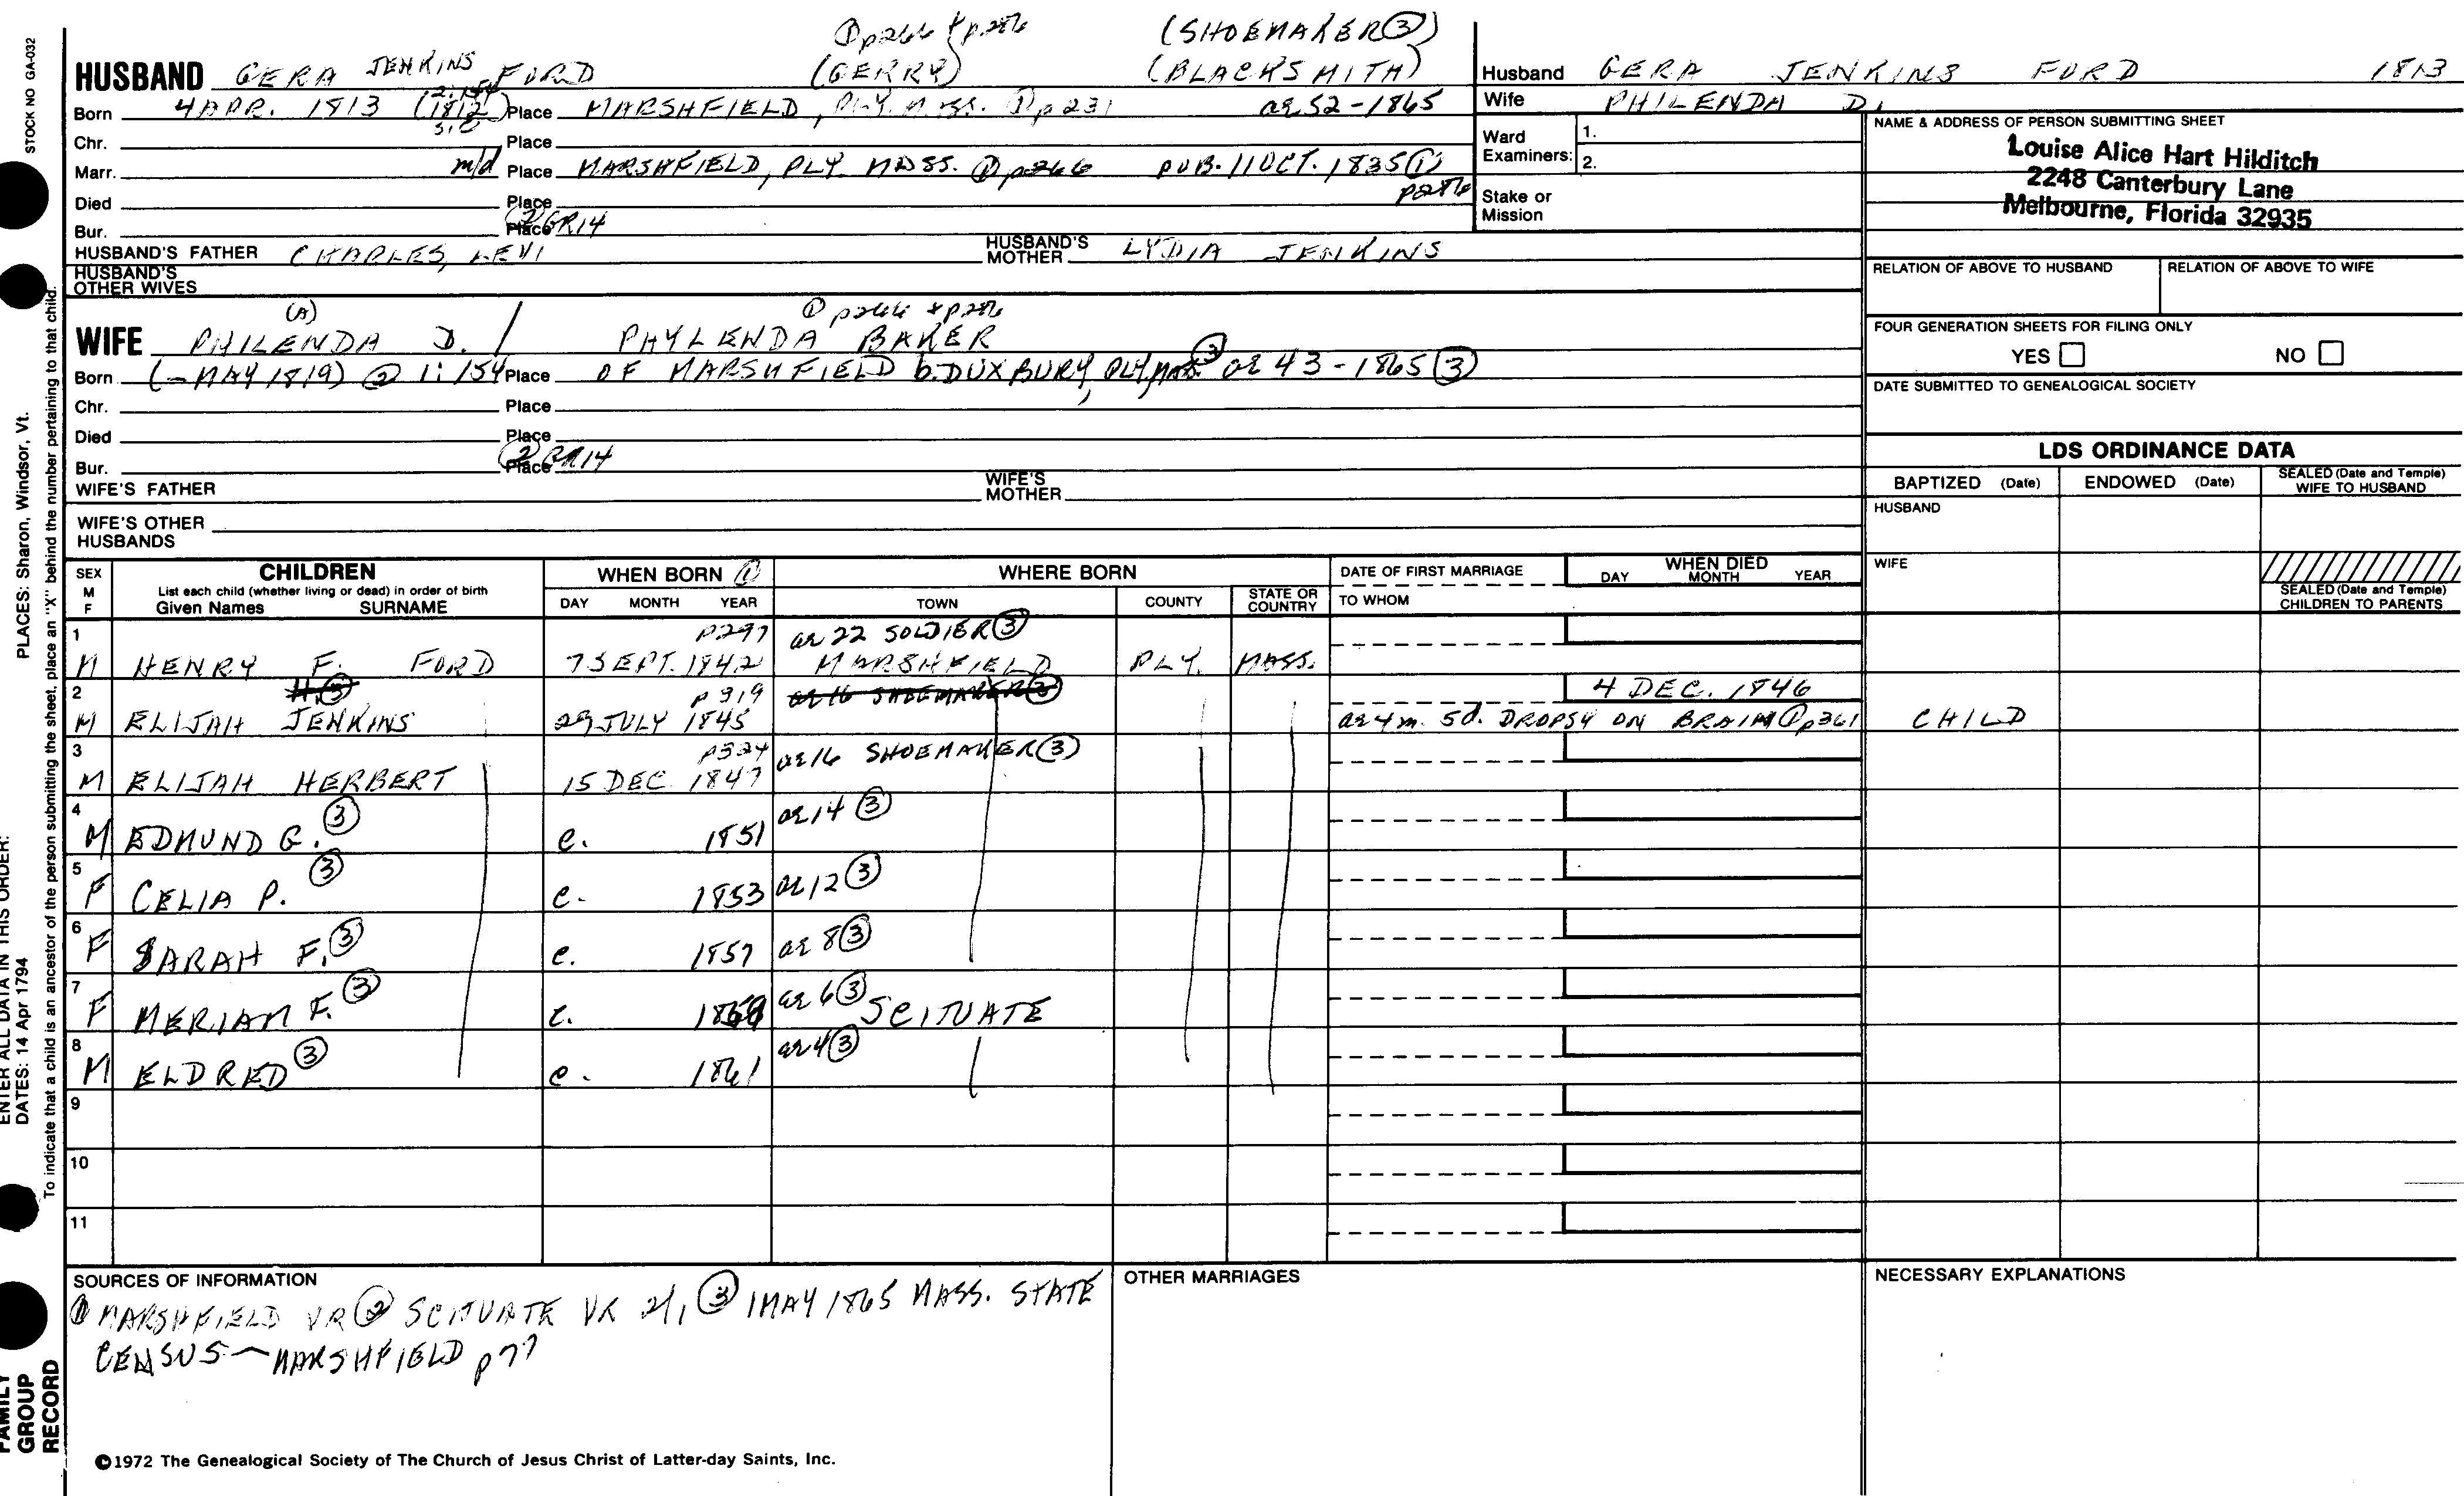 STOCK NO GA-032
① p266 & p286 (SHOEMAKER ③)
HUSBAND GERA JENKINS FORD (GERRY) (BLACKSMITH)
Born 4 APR. 1813 (1812) Place MARSHFIELD, PLY. MASS. ① p231 ae 52-1865
Chr. Place
Marr. m/d Place MARSHFIELD, PLY MASS. ① p266 PUB. 11 OCT. 1835 ①
p286
Died Place
Bur. Place ② GR14
HUSBAND'S FATHER CHARLES, LEVI HUSBAND'S MOTHER LYDIA JENKINS
HUSBAND'S OTHER WIVES
(A) ① p266 & p286
WIFE PHILENDA D. / PHYLENDA BAKER
Born (- MAY 1819) ② 1:154 Place OF MARSHFIELD b. DUXBURY, PLY, MASS. ③ ae 43-1865 ③
Chr. Place
Died Place
Bur. Place ② GR14
WIFE'S FATHER WIFE'S MOTHER
WIFE'S OTHER HUSBANDS
Husband GERA JENKINS FORD 1813
Wife PHILENDA D.
Ward Examiners: 1.
2.
Stake or Mission
NAME & ADDRESS OF PERSON SUBMITTING SHEET
Louise Alice Hart Hilditch
2248 Canterbury Lane
Melbourne, Florida 32935
RELATION OF ABOVE TO HUSBAND RELATION OF ABOVE TO WIFE
FOUR GENERATION SHEETS FOR FILING ONLY
YES NO
DATE SUBMITTED TO GENEALOGICAL SOCIETY
LDS ORDINANCE DATA
BAPTIZED (Date) ENDOWED (Date) SEALED (Date and Temple) WIFE TO HUSBAND
HUSBAND
WIFE
SEALED (Date and Temple) CHILDREN TO PARENTS
SEX M F CHILDREN WHEN BORN ① WHERE BORN DATE OF FIRST MARRIAGE WHEN DIED
List each child (whether living or dead) in order of birth
Given Names SURNAME DAY MONTH YEAR TOWN COUNTY STATE OR COUNTRY TO WHOM DAY MONTH YEAR
1 p297 ae 22 SOLDIER ③
M HENRY F. FORD 7 SEPT. 1842 MARSHFIELD PLY. MASS.
2 H. ③ p 319 ae 16 SHOEMAKER ③ 4 DEC. 1846
M ELIJAH JENKINS 29 JULY 1845 ae 4 m. 5d. DROPSY ON BRAIN ① p361 CHILD
3 p324 ae 16 SHOEMAKER ③
M ELIJAH HERBERT 15 DEC 1847
4 ae 14 ③
M EDMUND G. ③ c. 1851
5 ae 12 ③
F CELIA P. ③ c. 1853
6 ae 8 ③
F SARAH F. ③ c. 1857
7 ae 6 ③
F MERIAM F. ③ c. SCITUATE
8 ae 4 ③
M ELDRED ③ c. 1861
9
10
11
SOURCES OF INFORMATION
① MARSHFIELD VR ② SCITUATE VR 2/1 ③ 1 MAY 1865 MASS. STATE
CENSUS — MARSHFIELD p 77
OTHER MARRIAGES
NECESSARY EXPLANATIONS
©1972 The Genealogical Society of The Church of Jesus Christ of Latter-day Saints, Inc.
PLACES: Sharon, Windsor, Vt.
ENTER ALL DATA IN THIS ORDER:
DATES: 14 Apr 1794
To indicate that a child is an ancestor of the person submitting the sheet, place an "X" behind the number pertaining to that child.
FAMILY GROUP RECORD